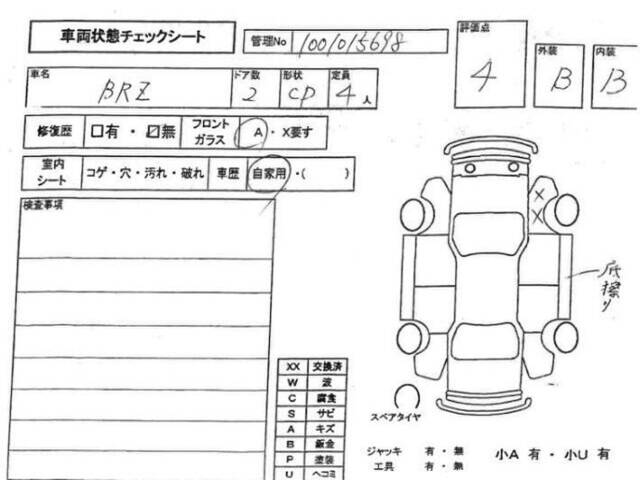 車両状態チェックシート
管理No 1001015698
評価点 4
外装 B
内装 B
車名 BRZ
ドア数 2
形状 CP
定員 4人
修復歴 □有・☑無
フロントガラス A・X要す
室内シート コゲ・穴・汚れ・破れ
車歴 自家用・( )
検査事項
X
X
底擦り
XX 交換済
W 波
C 腐食
S サビ
A キズ
B 鈑金
P 塗装
U ヘコミ
スペアタイヤ
ジャッキ 有・無
工具 有・無
小A 有・小U 有